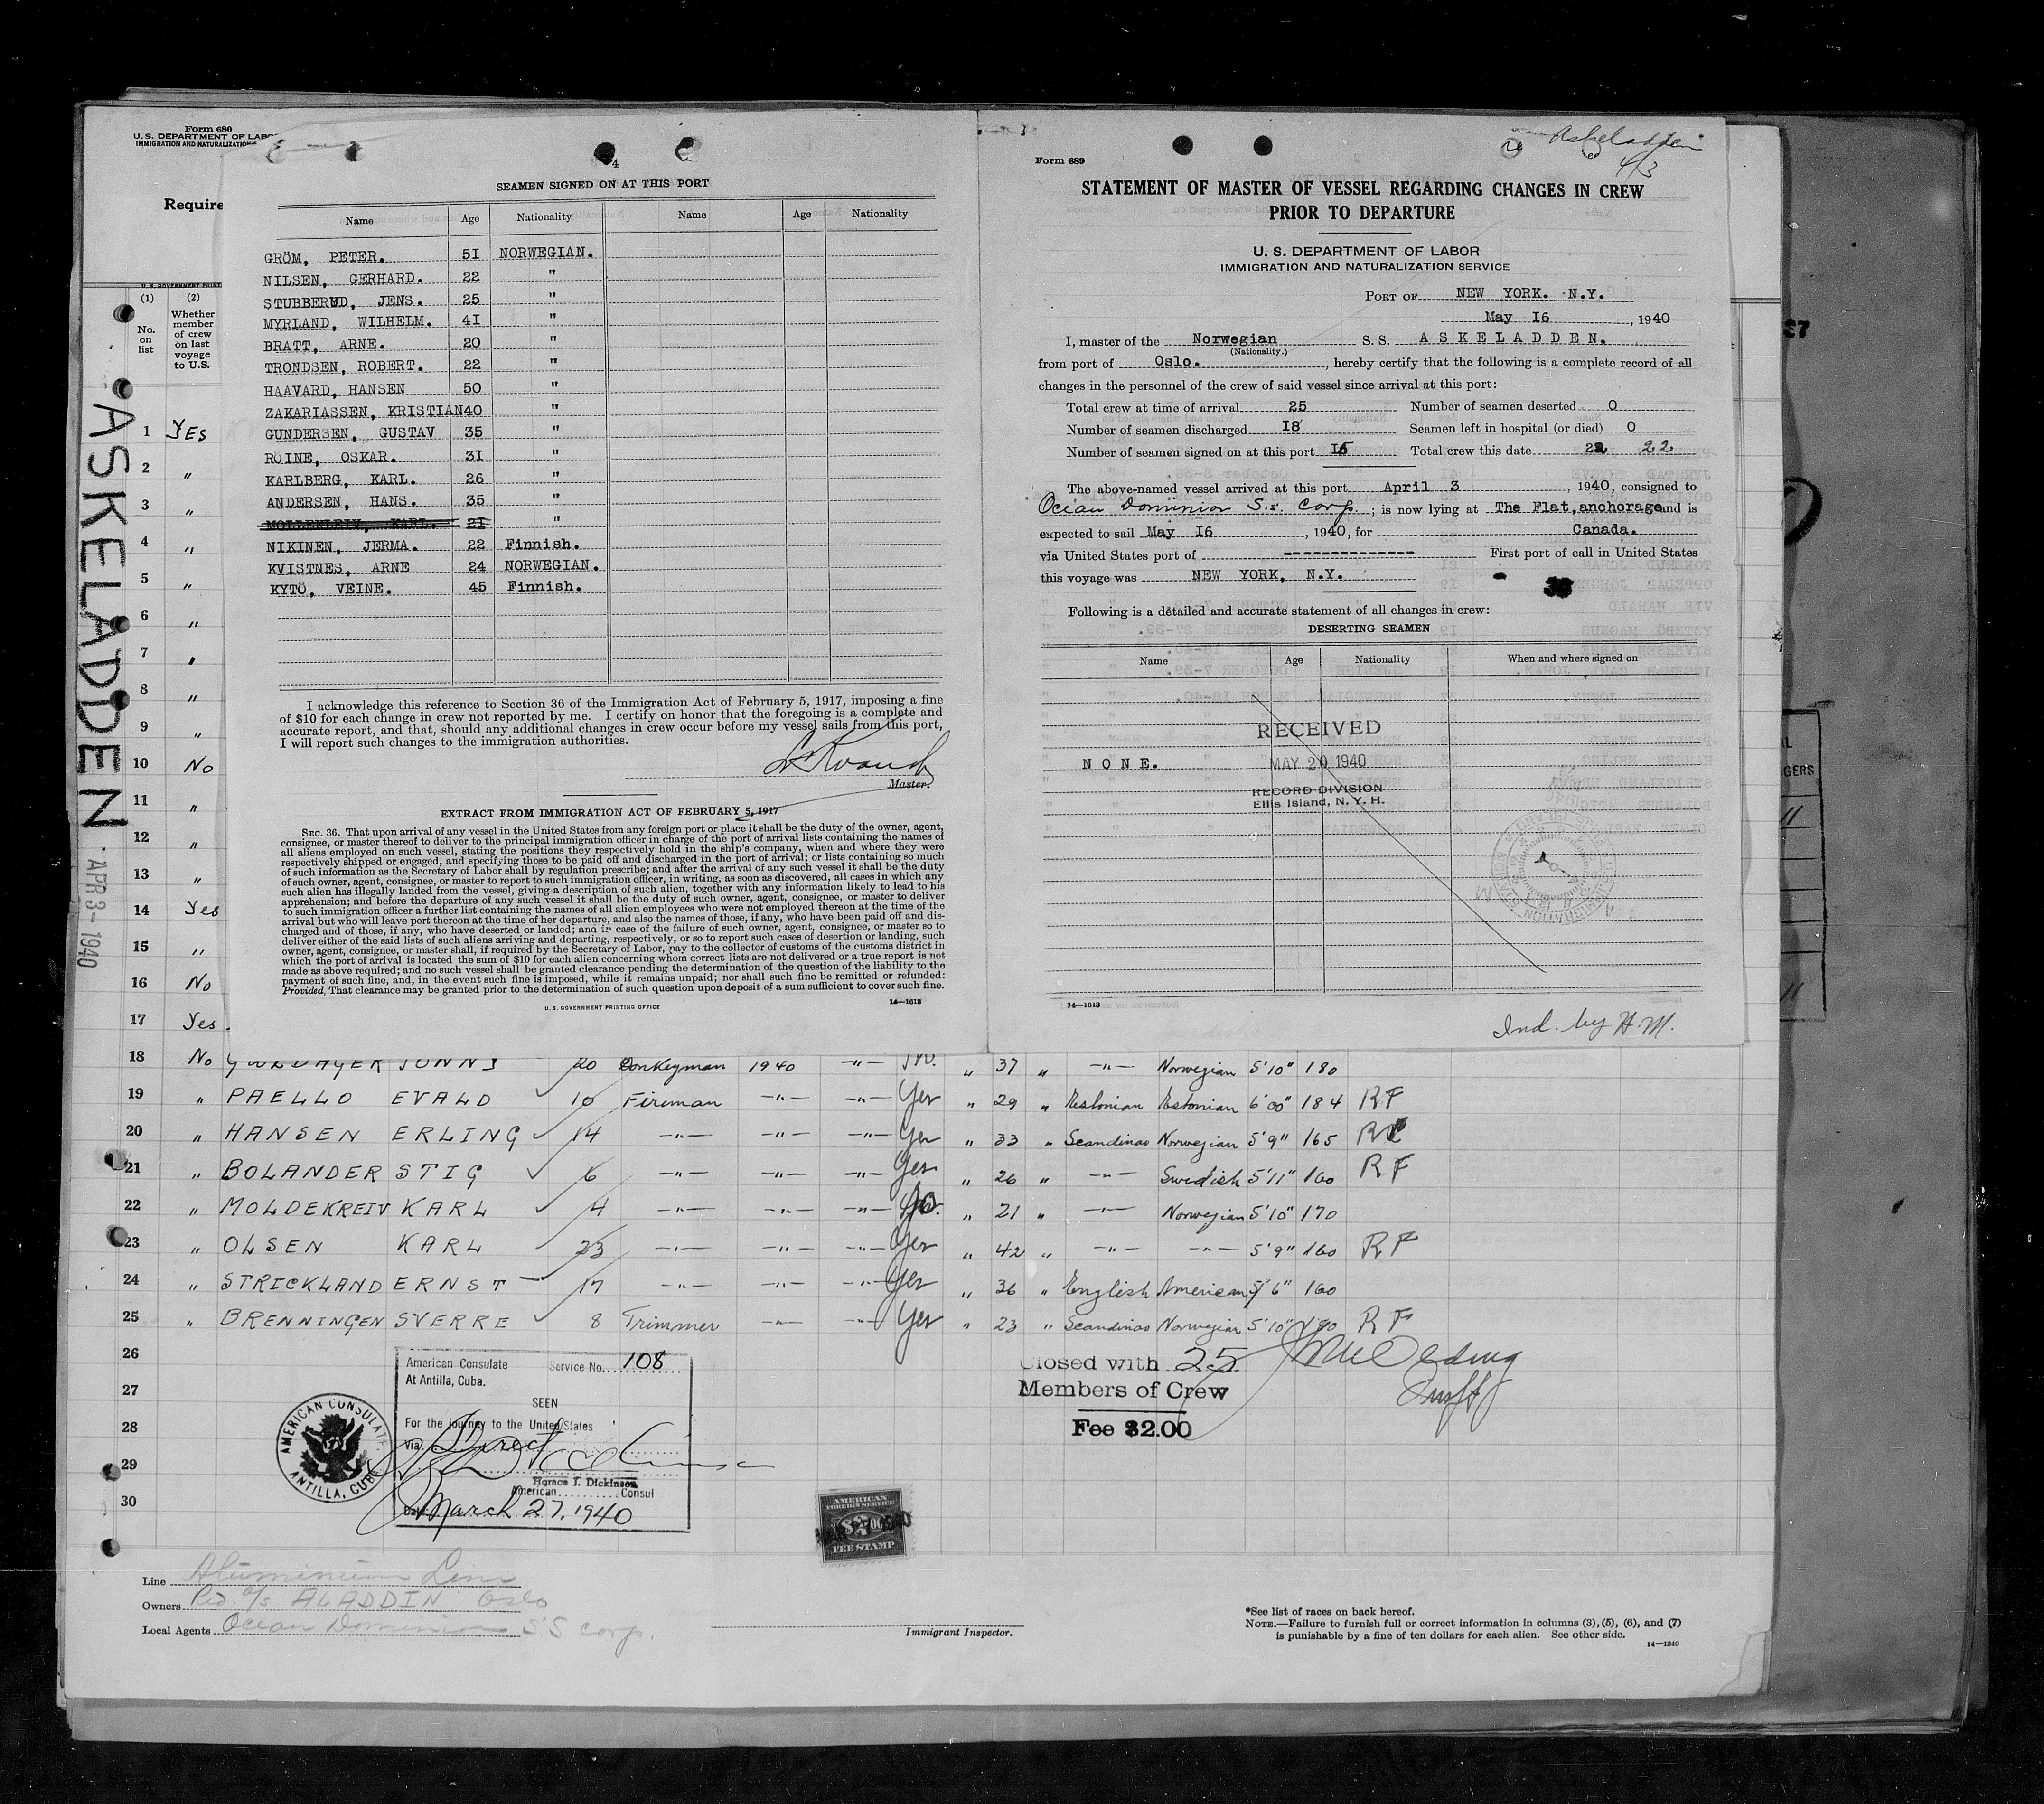 Form 680
U. S. DEPARTMENT OF LABO
IMMIGRATION AND NATURALIZATION
Require
U. S. GOVERNMENT PRINT
(1)
No. on list
(2)
Whether member of crew on last voyage to U.S.
ASKELADDEN
APR 3 - 1940
1 Yes
2 "
3 "
4 "
5 "
6 "
7 "
8 "
9 "
10 No
11 "
12 "
13 "
14 Yes
15 "
16 No
17 Yes.
4
SEAMEN SIGNED ON AT THIS PORT
Name Age Nationality Name Age Nationality
GRÖM, PETER. 51 NORWEGIAN.
NILSEN, GERHARD. 22 "
STUBBERUD, JENS. 25 "
MYRLAND, WILHELM. 41 "
BRATT, ARNE. 20 "
TRONDSEN, ROBERT. 22 "
HAAVARD, HANSEN 50 "
ZAKARIASSEN, KRISTIAN 40 "
GUNDERSEN, GUSTAV 35 "
ROINE, OSKAR. 31 "
KARLBERG, KARL. 26 "
ANDERSEN, HANS. 35 "
KARL. 21 "
NIKINEN, JERMA. 22 Finnish.
KVISTNES, ARNE 24 NORWEGIAN.
KYTÖ, VEINE. 45 Finnish.
I acknowledge this reference to Section 36 of the Immigration Act of February 5, 1917, imposing a fine
of $10 for each change in crew not reported by me. I certify on honor that the foregoing is a complete and
accurate report, and that, should any additional changes in crew occur before my vessel sails from this port,
I will report such changes to the immigration authorities.
Master.
EXTRACT FROM IMMIGRATION ACT OF FEBRUARY 5, 1917
SEC. 36. That upon arrival of any vessel in the United States from any foreign port or place it shall be the duty of the owner, agent,
consignee, or master thereof to deliver to the principal immigration officer in charge of the port of arrival lists containing the names of
all aliens employed on such vessel, stating the positions they respectively hold in the ship's company, when and where they were
respectively shipped or engaged, and specifying those to be paid off and discharged in the port of arrival; or lists containing so much
of such information as the Secretary of Labor shall by regulation prescribe; and after the arrival of any such vessel it shall be the duty
of such owner, agent, consignee, or master to report to such immigration officer, in writing, as soon as discovered, all cases in which any
such alien has illegally landed from the vessel, giving a description of such alien, together with any information likely to lead to his
apprehension; and before the departure of any such vessel it shall be the duty of such owner, agent, consignee, or master to deliver
to such immigration officer a further list containing the names of all alien employees who were not employed thereon at the time of the
arrival but who will leave port thereon at the time of her departure, and also the names of those, if any, who have been paid off and dis-
charged and of those, if any, who have deserted or landed; and in case of the failure of such owner, agent, consignee, or master so to
deliver either of the said lists of such aliens arriving and departing, respectively, or so to report such cases of desertion or landing, such
owner, agent, consignee, or master shall, if required by the Secretary of Labor, pay to the collector of customs of the customs district in
which the port of arrival is located the sum of $10 for each alien concerning whom correct lists are not delivered or a true report is not
made as above required; and no such vessel shall be granted clearance pending the determination of the question of the liability to the
payment of such fine, and, in the event such fine is imposed, while it remains unpaid; nor shall such fine be remitted or refunded:
Provided, That clearance may be granted prior to the determination of such question upon deposit of a sum sufficient to cover such fine.
U. S. GOVERNMENT PRINTING OFFICE 14—1613
Askeladden
4/3
Form 689
STATEMENT OF MASTER OF VESSEL REGARDING CHANGES IN CREW
PRIOR TO DEPARTURE
U. S. DEPARTMENT OF LABOR
IMMIGRATION AND NATURALIZATION SERVICE
PORT OF NEW YORK. N.Y.
May 16, 1940
I, master of the Norwegian S. S. ASKELADDEN.
(Nationality.)
from port of Oslo. , hereby certify that the following is a complete record of all
changes in the personnel of the crew of said vessel since arrival at this port:
Total crew at time of arrival 25 Number of seamen deserted 0
Number of seamen discharged 18 Seamen left in hospital (or died) 0
Number of seamen signed on at this port 15 Total crew this date 22 22
The above-named vessel arrived at this port April 3, 1940, consigned to
Ocean Dominion S.s. Corp. ; is now lying at The Flat, anchorage and is
expected to sail May 16, 1940, for Canada.
via United States port of -------------- First port of call in United States
this voyage was NEW YORK, N.Y.
Following is a detailed and accurate statement of all changes in crew:
DESERTING SEAMEN
Name Age Nationality When and where signed on
NONE.
RECEIVED
MAY 20 1940
RECORD DIVISION
Ellis Island, N. Y. H.
14—1613
Ind. by H.M.
37
18 No JONNY 20 Donkeyman 1940 —"— No. " 37 " —"— Norwegian 5'10" 180
19 " PAELLO EVALD 10 Fireman —"— —"— Yes " 29 " Estonian Estonian 6'00" 184 RF
20 " HANSEN ERLING 14 —"— —"— —"— Yes " 33 " Scandinav Norwegian 5'9" 165
21 " BOLANDER STIG 6 —"— —"— —"— Yes " 26 " —"— Swedish 5'11" 160 RF
22 " MOLDEKREIV KARL 4 —"— —"— —"— No. " 21 " —"— Norwegian 5'10" 170
23 " OLSEN KARL 23 —"— —"— —"— Yes " 42 " —"— —"— 5'9" 160 RF
24 " STRICKLAND ERNST 17 —"— —"— —"— Yes " 36 " English American 5'6" 160
25 " BRENNINGEN SVERRE 8 Trimmer —"— —"— Yes " 23 " Scandinav Norwegian 5'10" 190 RF
26
27
28
29
30
American Consulate Service No. 108
At Antilla, Cuba.
SEEN
For the journey to the United States
Via Direct
Horace J. Dickinson
American Consul
Date March 27, 1940
AMERICAN CONSULATE
ANTILLA, CUBA
Closed with 25
Members of Crew
Fee $2.00
AMERICAN
FOREIGN SERVICE
FEE STAMP
Line Aluminium Line
Owners Red. A/s ALADDIN Oslo
Local Agents Ocean Dominion S.S corp.
Immigrant Inspector.
*See list of races on back hereof.
NOTE.—Failure to furnish full or correct information in columns (3), (5), (6), and (7)
is punishable by a fine of ten dollars for each alien. See other side.
14—1240